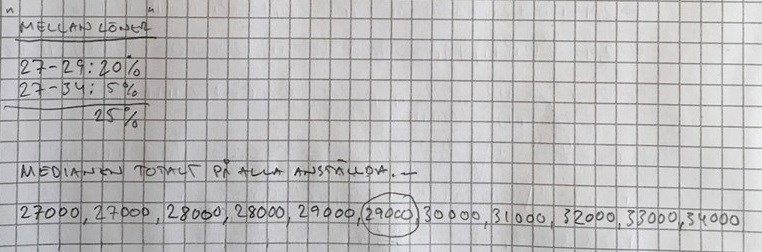 "MELLANLÖNER"
27-29: 20%
27-34: 5%
25%
MEDIANEN TOTALT PÅ ALLA ANSTÄLLDA.-
27000, 27000, 28000, 28000, 29000, 29000, 30000, 31000, 32000, 33000, 34000